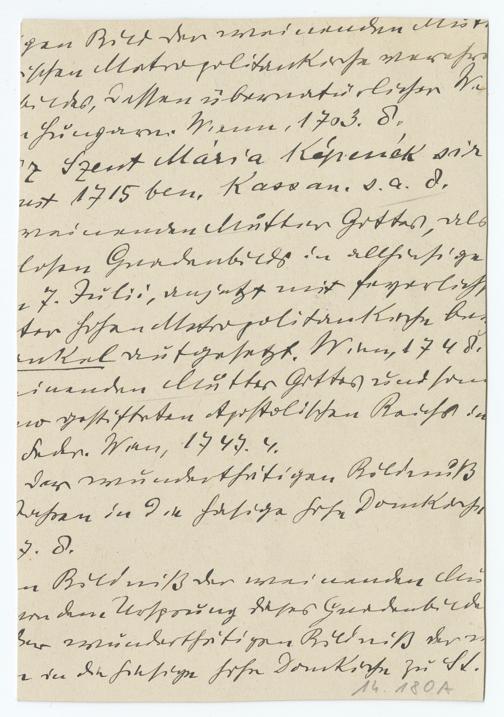 gen Bild der weinenden Mutt
ischen Metropolitankirche verehr
bildes, dessen übernatürlicher We
n Hungarn. Wienn, 1703. 8.
z Szent Mária Képenék sir
1715 ben. Kassan. s. a. 8.
weinenden Mutter Gottes, als
losen Gnadenbilds in allhiesige
n 7. Julii, anjetzt mit feyerlich
ter hohen Metropolitankirche be
enkel aufgesetzt. Wien, 1748.
einenden Mutter Gottes und
gestifteten Apostolischen Reichs in
Wien, 1747. 4.
der wunderthätigen Bildniß
Jahren in die hiesige hohe Domkirche
7. 8.
n Bildniß der weinenden Mu
von dem Ursprung dieses Gnadenbilde
der wunderthätigen Bildniß der
in die hiesige hohe Domkirche zu St.
14. 180A